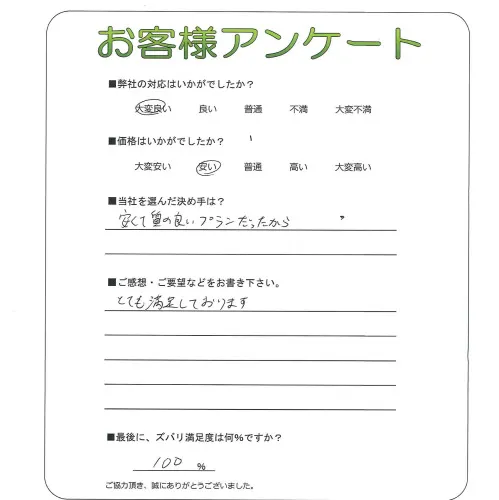 お客様アンケート
■弊社の対応はいかがでしたか？
大変良い 良い 普通 不満 大変不満
■価格はいかがでしたか？
大変安い 安い 普通 高い 大変高い
■当社を選んだ決め手は？
安くて質の良いプランだったから
■ご感想・ご要望などをお書き下さい。
とても満足しております
■最後に、ズバリ満足度は何％ですか？
100 ％
ご協力頂き、誠にありがとうございました。